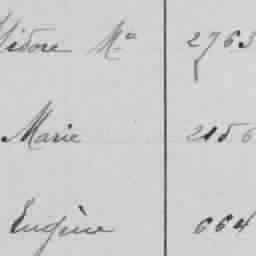 Isidore Mce 2763
Marie 2156
Eugène 664